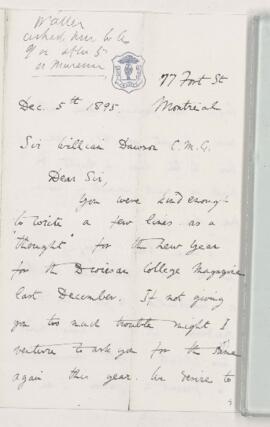 asked him to
77 Fort St
Dec. 5th 1895. Montreal
Sir William Dawson C.M.G.
Dear Sir,
You were kind enough
to write a few lines as a
"thought" for the New Year
for the Diocesan College Magazine
last December. If not giving
you too much trouble might I
venture to ask you for the same
again this year. We desire to